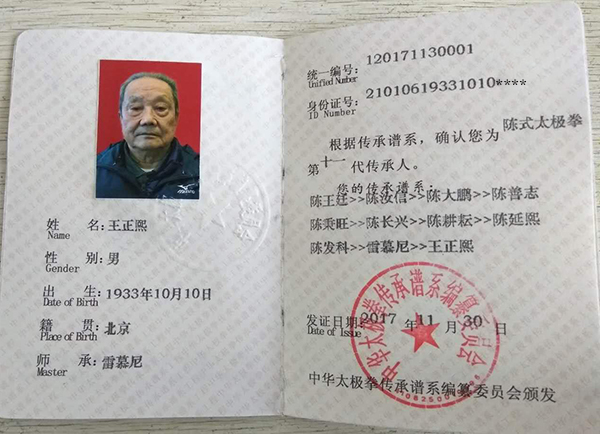 姓 名:王正熙
Name
性 别:男
Gender
出 生:1933年10月10日
Date of Birth
籍 贯:北京
Place of Birth
师 承:雷慕尼
Master
统一编号:120171130001
Unified Number
身份证号:21010619331010****
ID Number
根据传承谱系,确认您为陈式太极拳
第十一代传承人。
您的传承谱系:
陈王廷>>陈汝信>>陈大鹏>>陈善志
陈秉旺>>陈长兴>>陈耕耘>>陈延熙
陈发科>>雷慕尼>>王正熙
发证日期:2017年11月30日
Date of Issue
中华太极拳传承谱系编纂委员会
中华太极拳传承谱系编纂委员会颁发